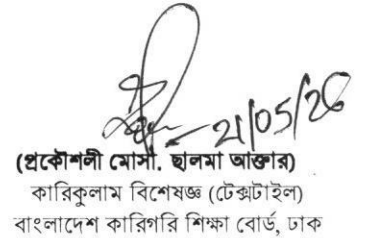 21/05/26
(প্রকৌশলী মোসা. ছালমা আক্তার)
কারিকুলাম বিশেষজ্ঞ (টেক্সটাইল)
বাংলাদেশ কারিগরি শিক্ষা বোর্ড, ঢাক